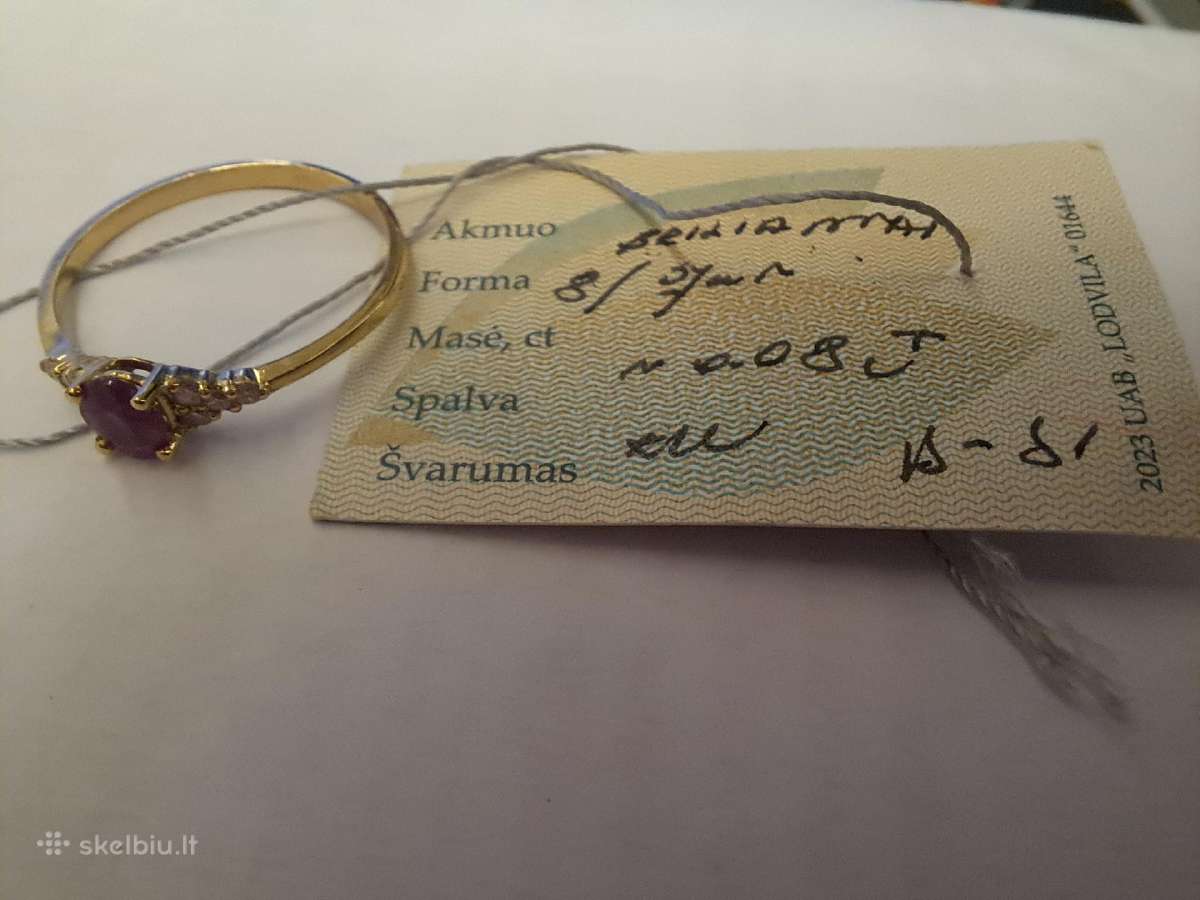 Akmuo BRILIANTAI
Forma 8/57
Masė, ct ~ 0.08 ct
Spalva
Švarumas VS-SI
2023 UAB „LODVILA" 01644
skelbiu.lt